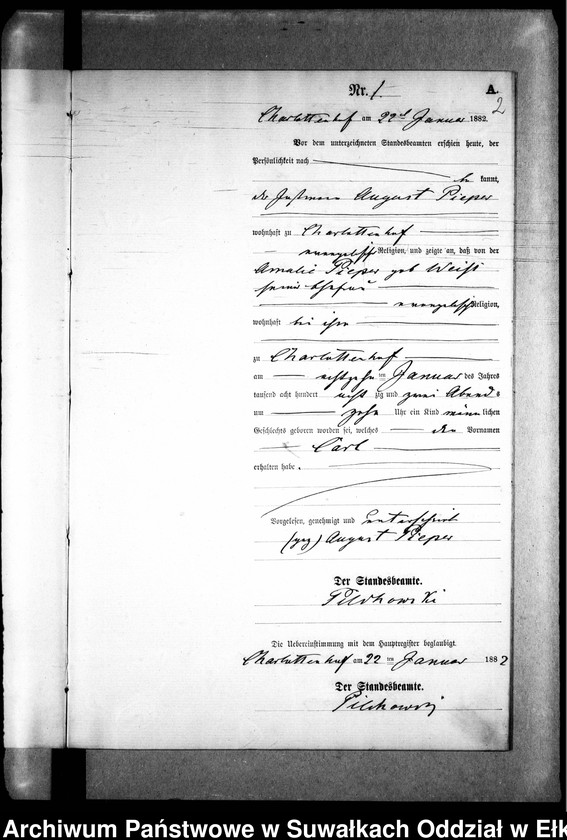 Nr. 1 A.
2
Charlottenhof am 22ten Januar 1882.
Vor dem unterzeichneten Standesbeamten erschien heute, der
Persönlichkeit nach
be kannt,
der Instmann August Pieper
wohnhaft zu Charlottenhof
evangelischer Religion, und zeigte an, daß von der
Amalie Pieper geb Weiß
seiner Ehefrau
evangelischer Religion,
wohnhaft bei ihm
zu Charlottenhof
am achtzehn ten Januar des Jahres
tausend acht hundert acht zig und zwei Abends
um zehn Uhr ein Kind männ lichen
Geschlechts geboren worden sei, welches den Vornamen
Carl
erhalten habe.
Vorgelesen, genehmigt und unterschrieben
(gez) August Pieper
Der Standesbeamte.
Pilchowski
Die Uebereinstimmung mit dem Hauptregister beglaubigt.
Charlottenhof am 22 ten Januar 1882
Der Standesbeamte.
Pilchowski
Archiwum Państwowe w Suwałkach Oddział w Ełk